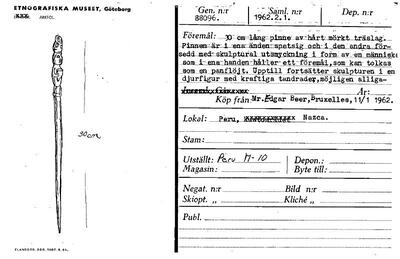 ETNOGRAFISKA MUSEET, Göteborg
30 cm
Gen. n:r
88096.
Saml. n:r
1962.2.1.
Dept. n:r
Föremål: 30 cm lång pinne av hårt mörkt träslag.
Pinnen är i ena änden spetsig och i den andra för-
sedd med skulptural utsmyckning i form av en människa
som i ena handen håller ett föremål, som kan tolkas
som en panflöjt. Upptill fortsätter skulpturen i en
djurfigur med kraftiga tandrader, möjligen alliga-
År:
Köp från Mr. Edgar Beer, Bruxelles, 11/1 1962.
Lokal: Peru, Nazca.
Stam:
Utställt: Peru M-10
Depon.:
Magasin:
Byte till:
Negat. n:r
Bild n:r
Skiopt. „
Kliché „
Publ.